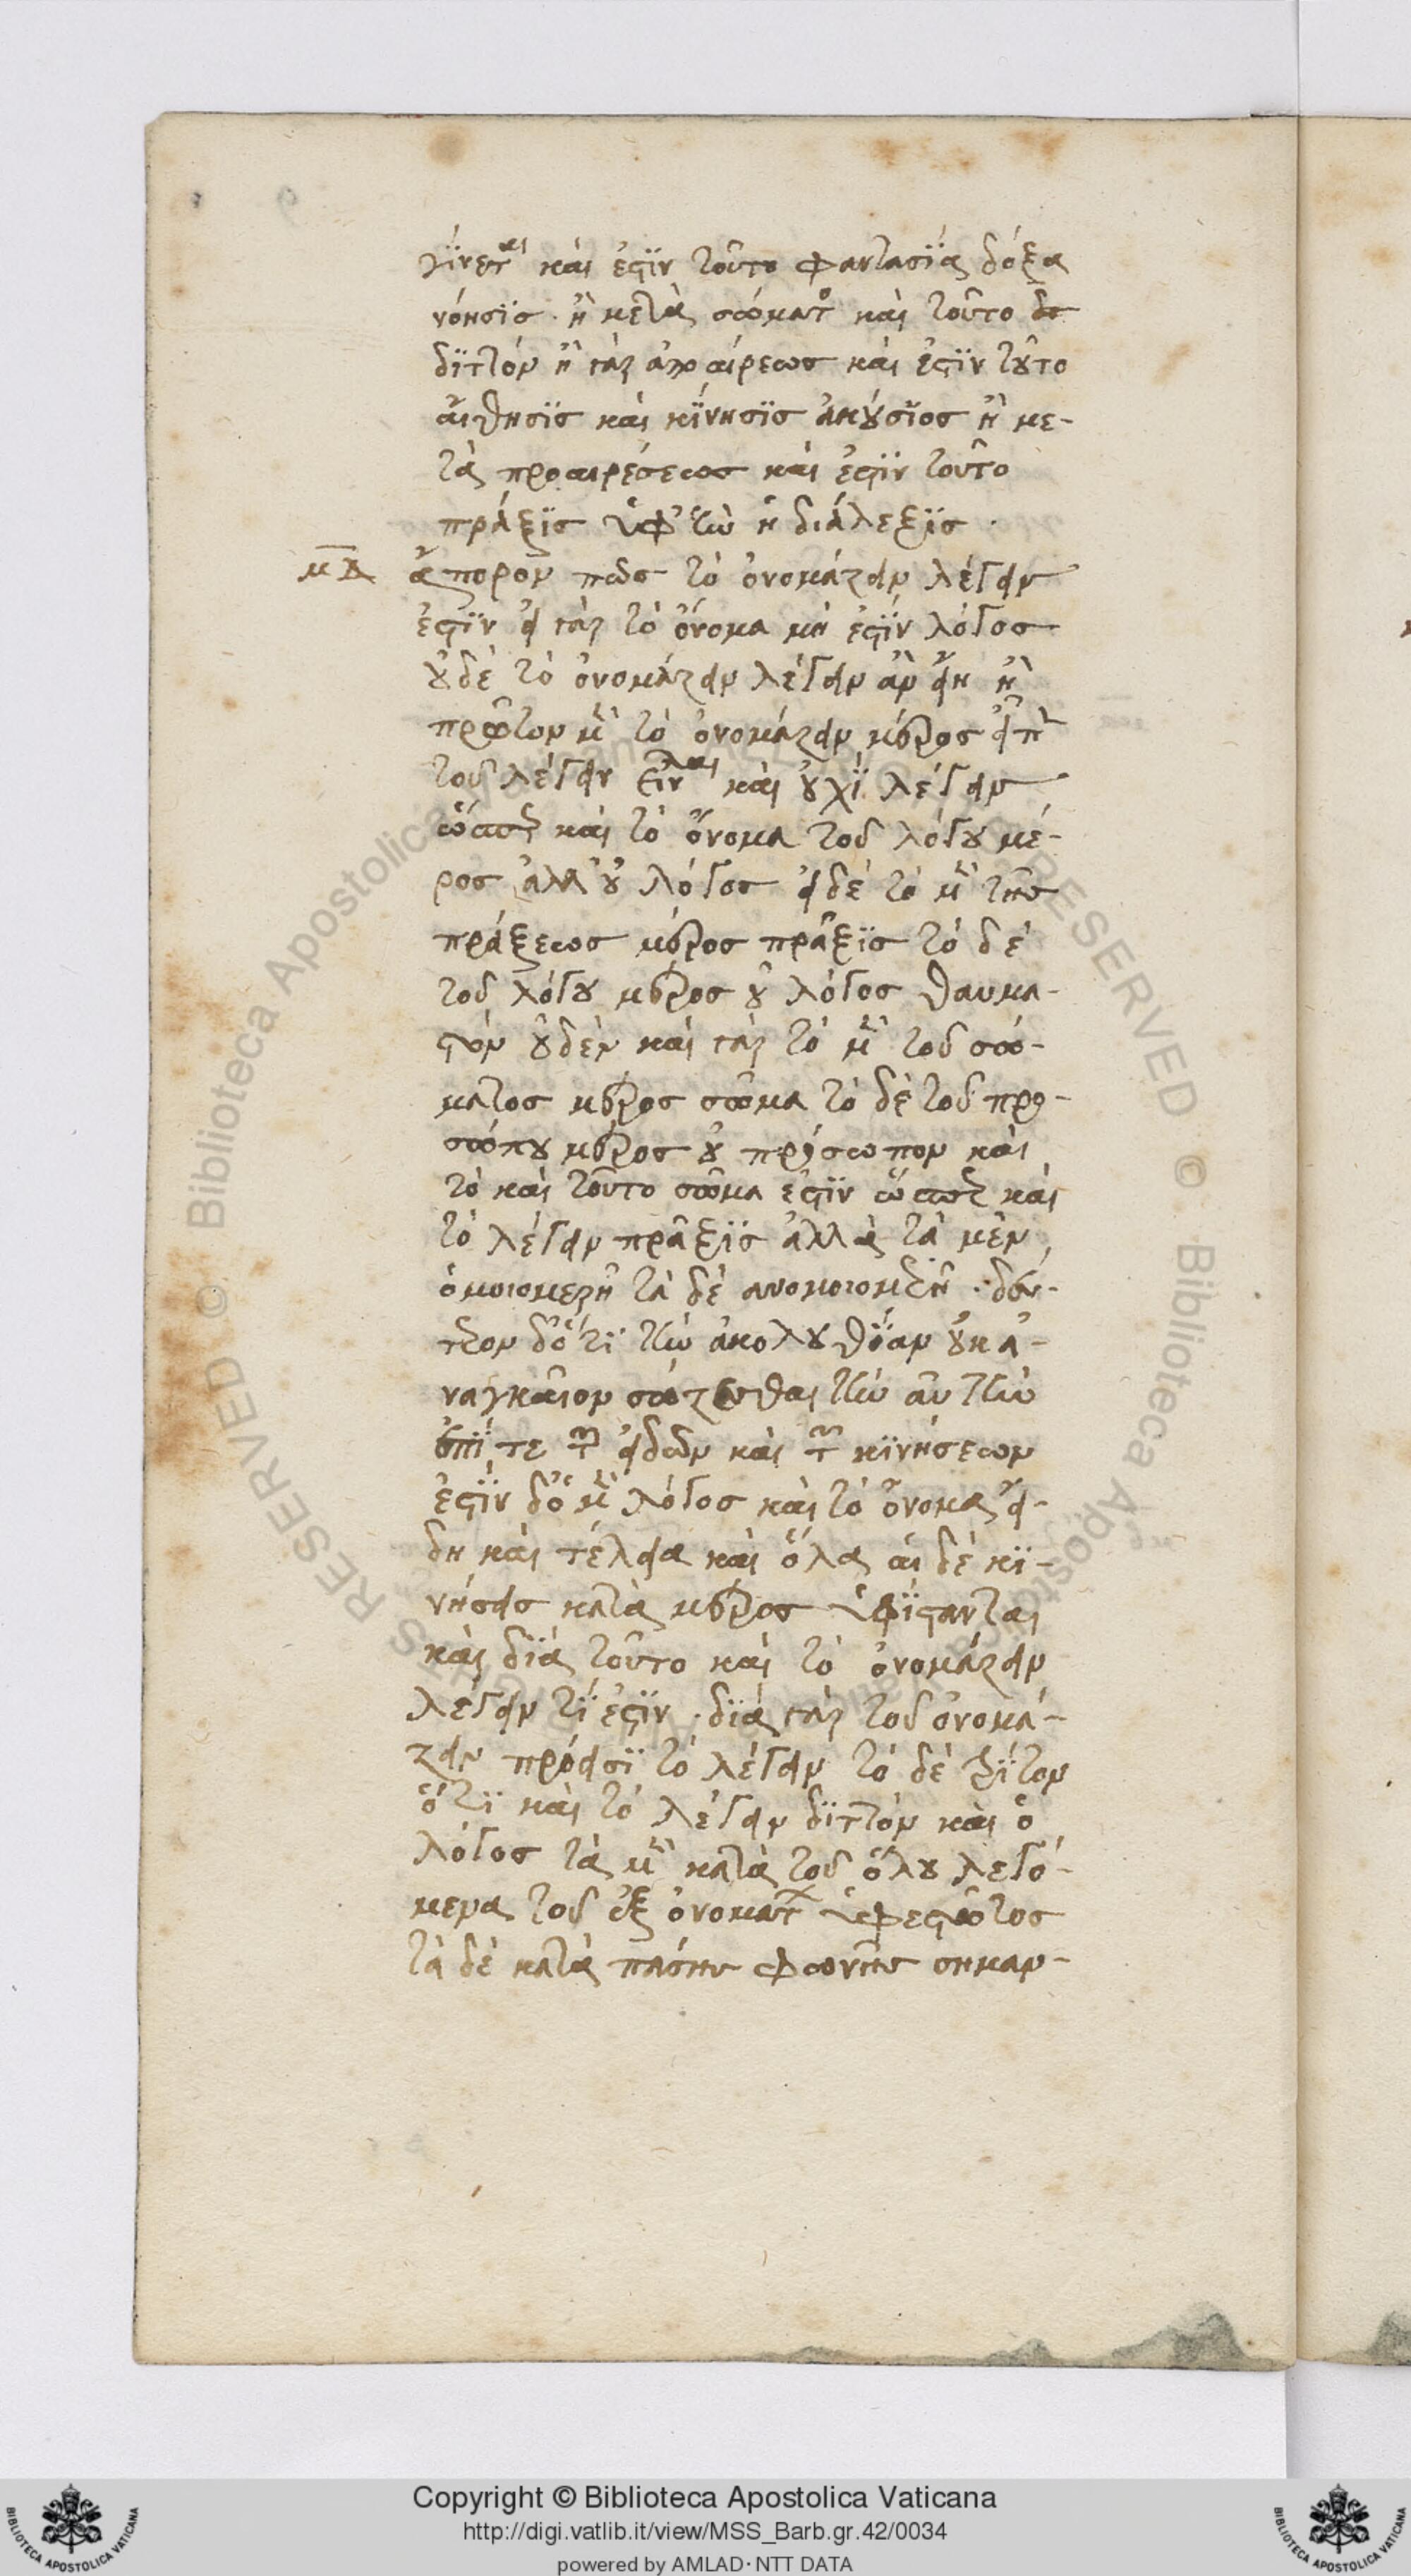 γίνεται καὶ ἐστὶν τοῦτο φαντασία δόξα
νόησις · ἢ μετὰ σώματος καὶ τοῦτο
διττόν ἢ γὰρ αἱρεως καὶ ἐστὶν τοῦτο
αἴσθησις καὶ κίνησις ἀκούσιος ἢ με-
τὰ προαιρέσεως καὶ ἐστὶν τοῦτο
πρᾶξις ὑφ' ἣν ἡ διάλεξις ·
μδ ἄπορον πῶς τὸ ὀνομάζειν λέγειν
ἐστὶν εἰ γὰρ τὸ ὄνομα μή ἐστιν λόγος
οὐδὲ τὸ ὀνομάζειν λέγειν ἂν εἴη ἢ
πρῶτον μὲν τὸ ὀνομάζειν μέρος εἶπε
τοῦ λέγειν εἶναι καὶ οὐχὶ λέγειν
ὥσπερ καὶ τὸ ὄνομα τοῦ λόγου μέ-
ρος ἀλλ' οὐ λόγος εἰ δὲ τὸ μὲν τῆς
πράξεως μέρος πρᾶξις τὸ δὲ
τοῦ λόγου μέρος οὐ λόγος θαυμα-
στὸν οὐδὲν καὶ γὰρ τὸ μὲν τοῦ σώ-
ματος μέρος σῶμα τὸ δὲ τοῦ προ-
σώπου μέρος οὐ πρόσωπον καὶ
τὸ καὶ τοῦτο σῶμα ἐστὶν ὥσπερ καὶ
τὸ λέγειν πρᾶξις ἀλλὰ τὰ μὲν
ὁμοιομερῆ τὰ δὲ ανομοιομερῆ · δεύ-
τερον δὲ ὅτι τὴν ἀκολουθίαν οὐκ ἀ-
ναγκαῖον σώζεσθαι τὴν αὐτὴν
ἐπί τε τῶν εἰδῶν καὶ τῶν κινήσεων
ἐστὶν δὲ ὁ μὲν λόγος καὶ τὸ ὄνομα εἴ-
δη καὶ τέλεια καὶ ὅλα αἱ δὲ κι-
νήσεις κατὰ μέρος ὑφίστανται
καὶ διὰ τοῦτο καὶ τὸ ὀνομάζειν
λέγειν τί ἐστὶν · διὰ γὰρ τοῦ ὀνομά-
ζειν πρόεισι τὸ λέγειν τὸ δὲ τρίτον
ὅτι καὶ τὸ λέγειν διττὸν καὶ ὁ
λόγος τὰ μὲν κατὰ τοῦ ὅλου λεγό-
μενα τοῦ ἐξ ὀνομάτων ὑφεστῶτος
τὰ δὲ κατὰ πάσης φωνῆς σημαν-
Copyright © Biblioteca Apostolica Vaticana
http://digi.vatlib.it/view/MSS_Barb.gr.42/0034
powered by AMLAD·NTT DATA